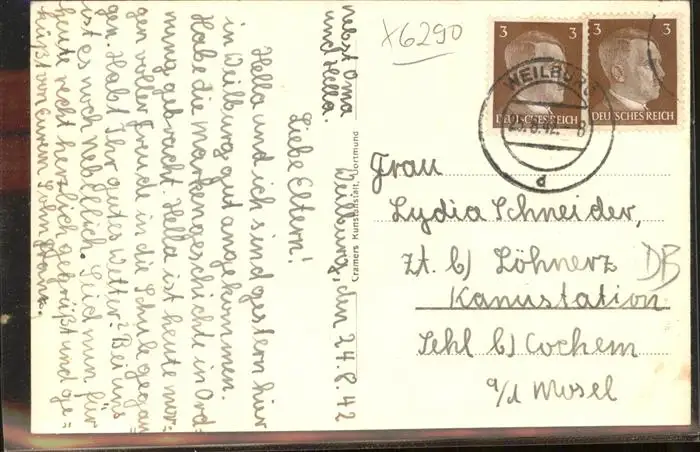 Weilburg, den 24.8.42
Liebe Eltern!
Hella und ich sind gestern hier
in Weilburg gut angekommen.
Habe die Markengeschichte in Ord=
nung gebracht. Hella ist heute mor=
gen voller Freude in die Schule gegan
gen. Habt Ihr gutes Wetter? Bei uns
ist es noch nebellich. Seid nun für
heute recht herzlich gegrüßt und ge=
küßt von Eurem Sohn Hans.
nebst Oma
und Hella.
Cramers Kunstanstalt, Dortmund
X6290
3 3
DEUTSCHES REICH
3 3
DEUTSCHES REICH
WEILBURG
25.8.42.-8
d
Frau
Lydia Schneider,
Zt. b) Löhnerz
DB
Kanustation
Sehl b) Cochem
a/d Mosel